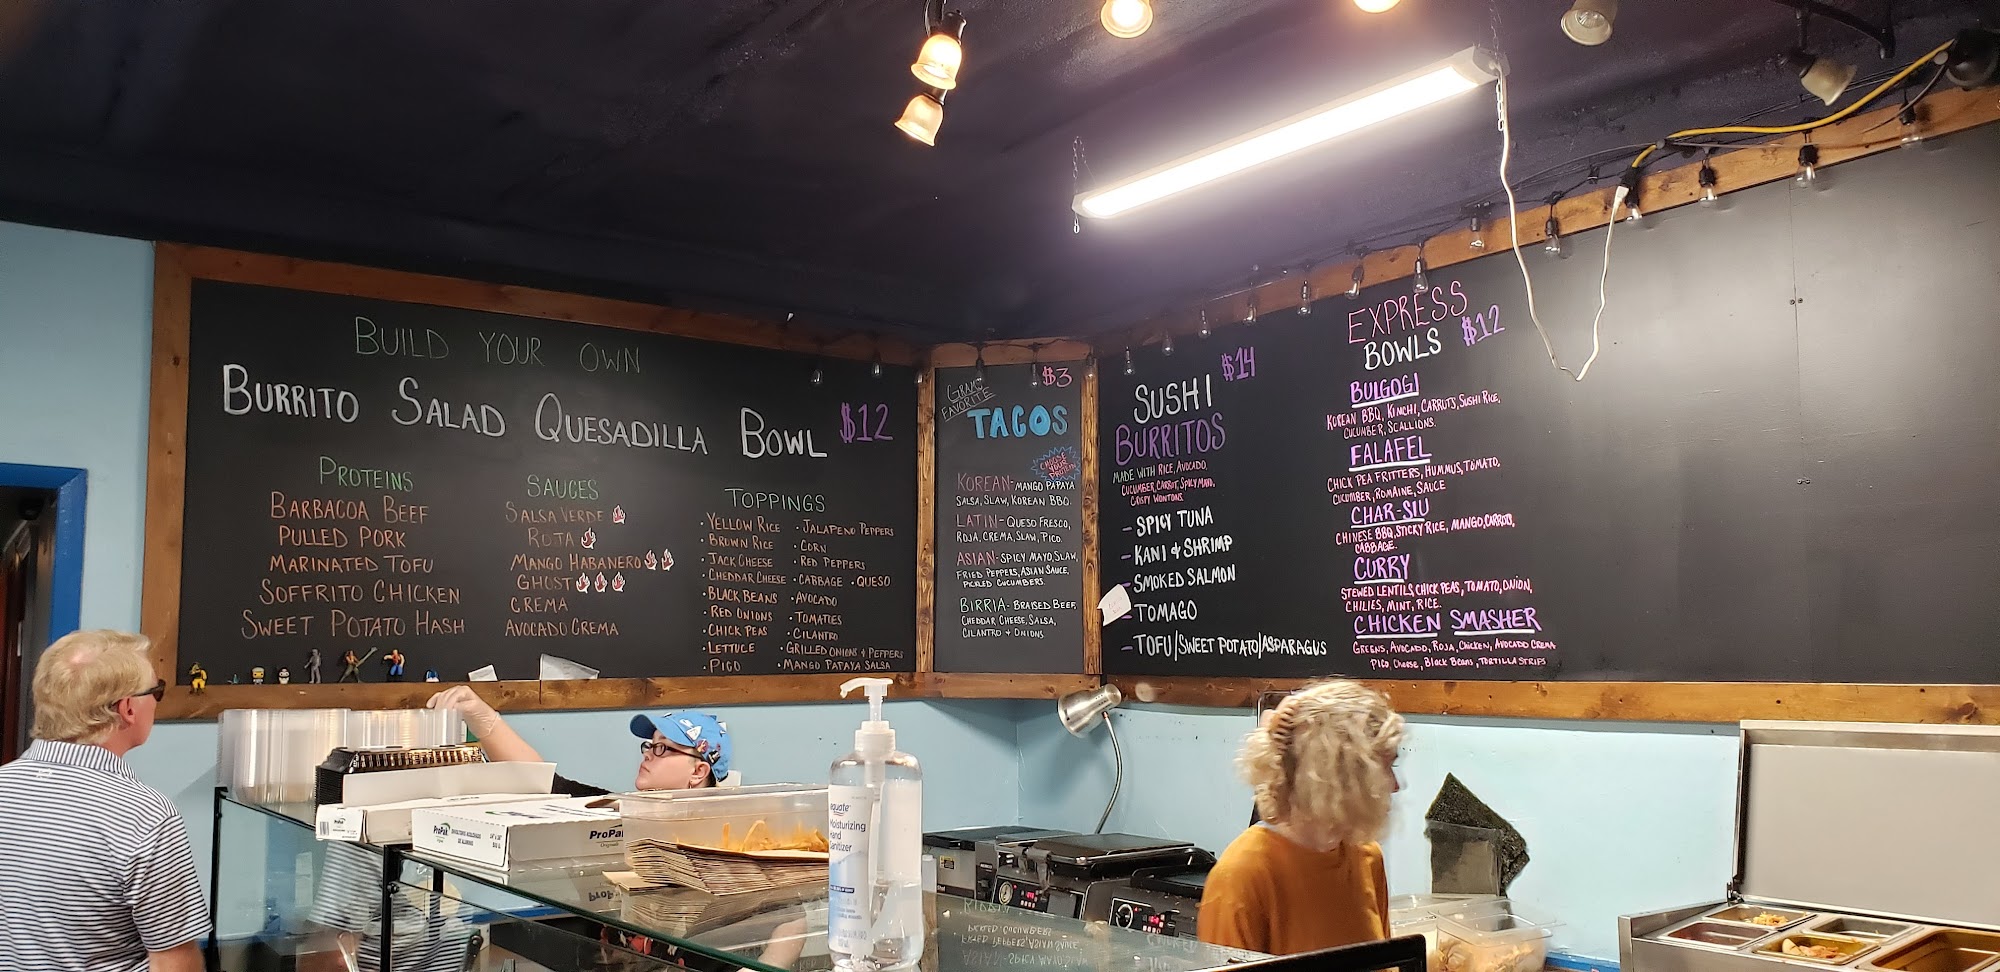 BUILD YOUR OWN
BURRITO SALAD QUESADILLA BOWL $12
PROTEINS
BARBACOA BEEF
PULLED PORK
MARINATED TOFU
SOFFRITO CHICKEN
SWEET POTATO HASH
SAUCES
SALSA VERDE
ROJA
MANGO HABANERO
GHOST
CREMA
AVOCADO CREMA
TOPPINGS
• YELLOW RICE
• BROWN RICE
• JACK CHEESE
• CHEDDAR CHEESE
• BLACK BEANS
• RED ONIONS
• CHICK PEAS
• LETTUCE
• PICO
• JALAPENO PEPPERS
• CORN
• RED PEPPERS
• CABBAGE • QUESO
• AVOCADO
• TOMATIES
• CILANTRO
• GRILLED ONIONS + PEPPERS
• MANGO PAPAYA SALSA
$3
FAVORITE
TACOS
CHOOSE
YOUR
PROTEIN
KOREAN- MANGO PAPAYA
SALSA, SLAW, KOREAN BBQ.
LATIN- QUESO FRESCO,
ROJA, CREMA, SLAW, PICO.
ASIAN- SPICY MAYO, SLAW,
FRIED PEPPERS, ASIAN SAUCE,
PICKLED CUCUMBERS.
BIRRIA- BRAISED BEEF,
CHEDDAR CHEESE, SALSA,
CILANTRO + ONIONS
$14
SUSHI
BURRITOS
MADE WITH RICE, AVOCADO,
CUCUMBER, CARROT, SPICY MAYO,
CRISPY WONTONS.
- SPICY TUNA
- KANI & SHRIMP
- SMOKED SALMON
- TOMAGO
- TOFU/SWEET POTATO/ASPARAGUS
EXPRESS
BOWLS $12
BULGOGI
KOREAN BBQ, KIMCHI, CARROTS, SUSHI RICE,
CUCUMBER, SCALLIONS.
FALAFEL
CHICK PEA FRITTERS, HUMMUS, TOMATO,
CUCUMBER, ROMAINE, SAUCE
CHAR-SIU
CHINESE BBQ, STICKY RICE, MANGO, CARROTS,
CABBAGE.
CURRY
STEWED LENTILS, CHICK PEAS, TOMATO, ONION,
CHILIES, MINT, RICE.
CHICKEN SMASHER
GREENS, AVOCADO, ROJA, CHICKEN, AVOCADO CREMA
PICO, CHEESE, BLACK BEANS, TORTILLA STRIPS
ProPak
ProPak
equate
Moisturizing
Hand
Sanitizer